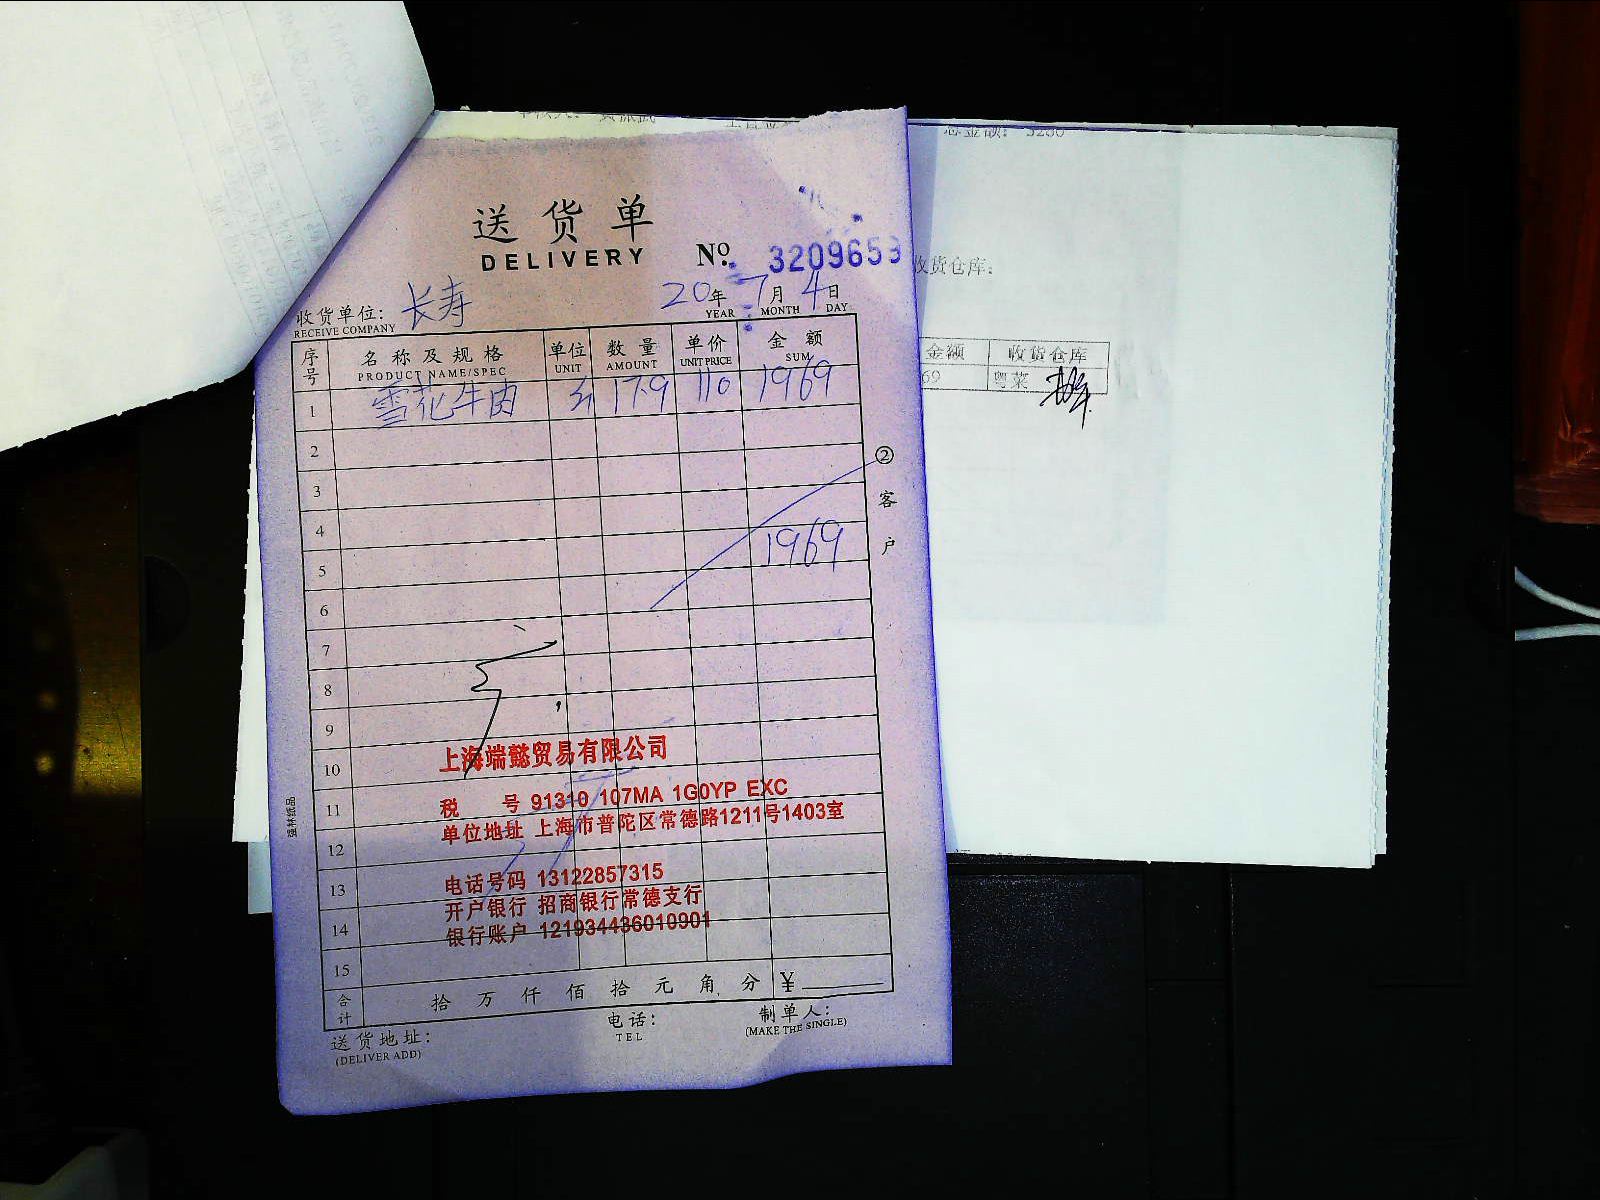 总金额: 3280
送货单
DELIVERY
No. 3209653
收货仓库:
收货单位: 长寿 20年 7月 4日
RECEIVE COMPANY YEAR MONTH DAY
序号 名称及规格 单位 数量 单价 金额
PRODUCT NAME/SPEC UNIT AMOUNT UNIT PRICE SUM
1 雪花牛肉 斤 17.9 110 1969
2
3
4
5 1969
6
7
8
9
10
11
12
13
14
15
金额 收货仓库
69 粤菜
②客户
上海端懿贸易有限公司
税 号 91310 107MA 1G0YP EXC
单位地址 上海市普陀区常德路1211号1403室
电话号码 13122857315
开户银行 招商银行常德支行
银行账户 121934436010901
合计 拾 万 仟 佰 拾 元 角 分 ¥
送货地址: 电话: 制单人:
(DELIVER ADD) TEL (MAKE THE SINGLE)
强林纸品